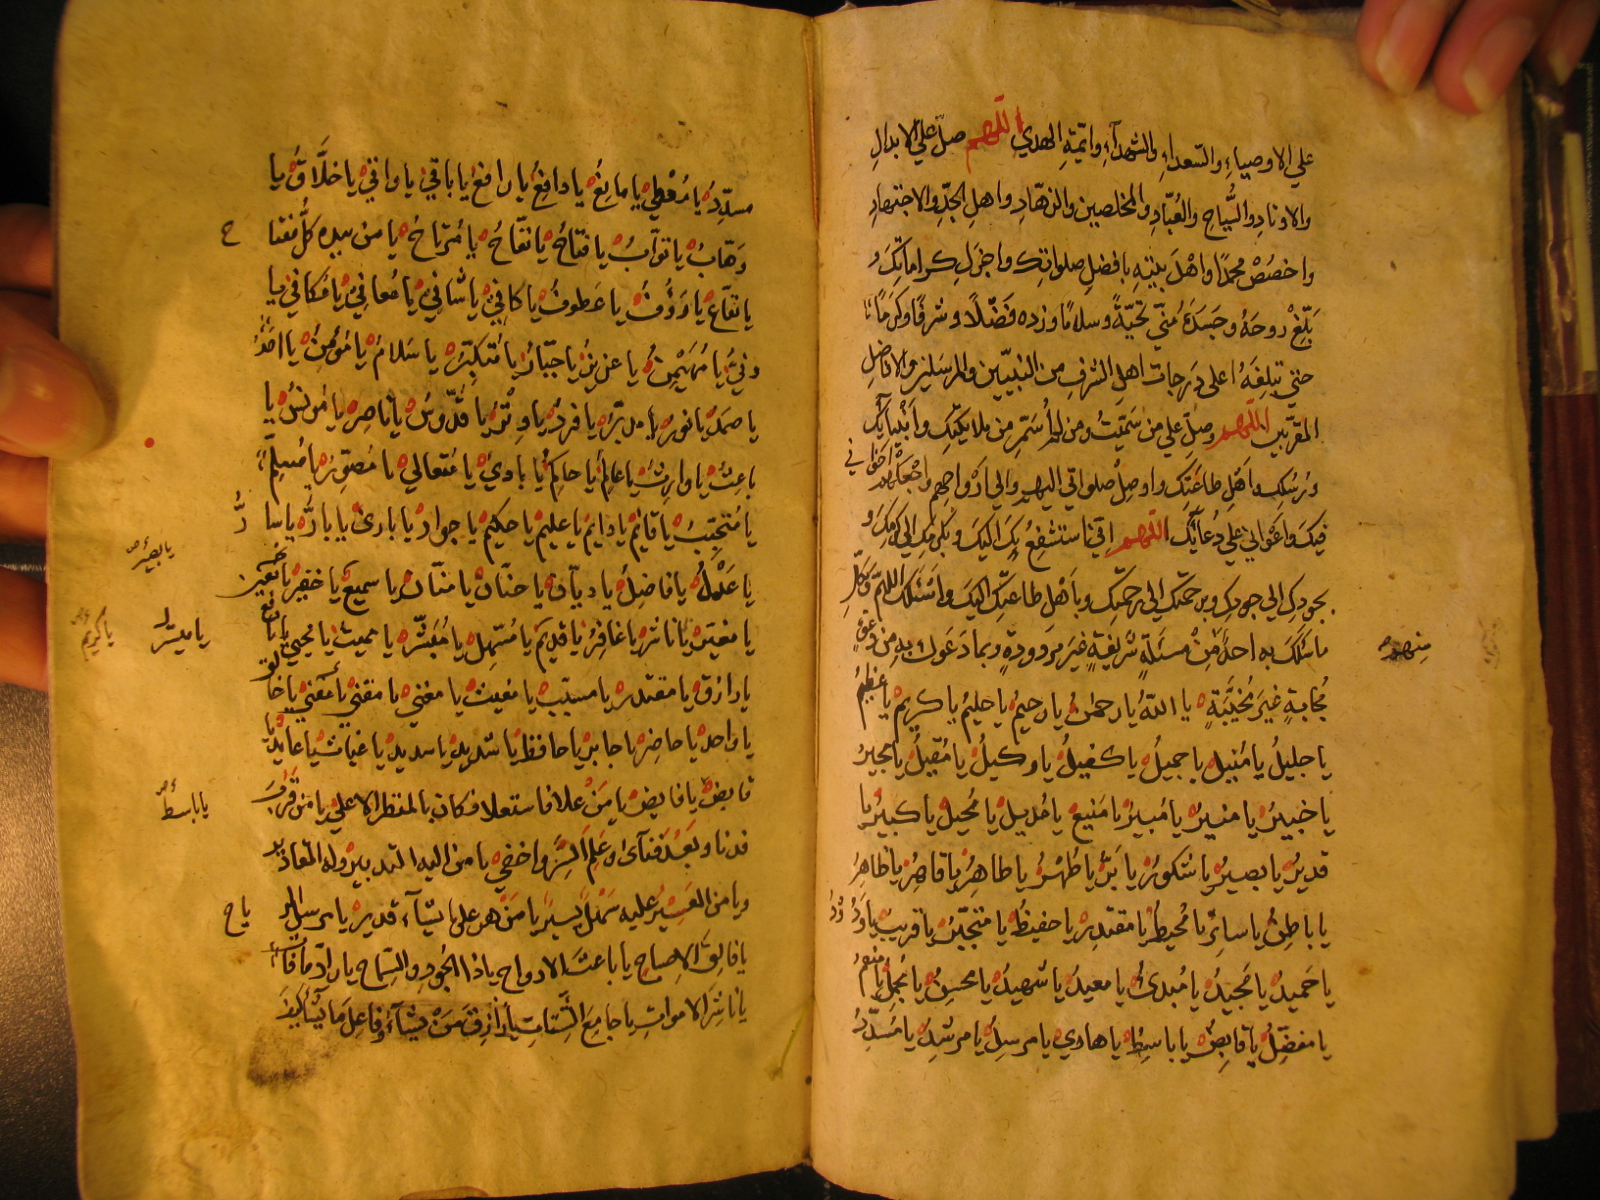 علي الاوصياء والسعداء والشهداء وائمّة الهدي اللّهم صلّ علي الابدال
والاوتاد والسُّيّاح والعُبّاد والمخلصين والزهّاد واهل الجدّ والاجتهاد
واخصُصْ محمدًا واهلَ بيتهِ بافضلِ صلواتِك واجزلِ كراماتِكَ و
بَلّغْ روحَهُ وجَسَدَهُ مُنّي تحيّةً وسلامًا وزده فَضْلًا وشرفًا وكرَمًا
حتي تبلغَهُ اعلي دَرجات اهلِ الشرفِ من النبيّين والمرسلين والافاضل
المقرّبين اللّهم وصلّ علي من سَمّيتُ ومن لم اُسمِّ من ملائكتِك وانبيائِك
ورُسُلِك واهلِ طاعتِك واوصِلْ صلواتي اليهم والي ارواحِهم واجْعلْهم اخواني
فيك واعْواني علي دعائِك اللّهم اِنّي استشفِعُ بِكَ اليكَ وبكرمِك الي كرمِكَ و
بجودِك الي جودِك وبرحمتك الي رحمتِك وباَهلِ طاعتِك اليكَ واسئلك اللهمّ بكلّ
ماسئلكَ به احدٌ منْ مسئلةٍ شريفةٍ غيرَ مردودةٍ وبما دَعَوك به من دعوة
منهم
مُجابةٍ غيرَ مُخيَّبَةٍ يا اللّهُ يا رحمنُ يا رحيمُ يا حليمُ يا كريم يا عظيمُ
يا جليلُ يا مُنيل يا جميلُ يا كفيلُ يا وكيلُ يا مُقيلُ يا مجيرُ
يا خبيرُ يا منيرُ يا مُبيرُ يا مَنيع يا مُديل يا مُحيل يا كبيرُ يا
قديرُ يا بصيرُ يا شكورُ يا بَرّ يا طُهرُ يا طاهِرُ يا قاهِرُ يا ظاهِرُ
يا باطِنُ يا ساتِرُ يا مُحيطُ يا مقتدِر يا حفيظُ يا متجبّرُ يا قريبُ يا وَدُودُ
يا حَميدُ يا مَجيدُ يا مُبدئُ يا معيدُ يا شهيدُ يا محسِنُ يا مُجملُ يا منعمُ
يا مفضِلُ يا قابِضُ يا باسِطُ يا هادي يا مرسِلُ يا مرشِدُ يا مُسَدِّدُ
مسدِّدُ يا مُعْطي يا مانِعُ يا دافِعُ يا رافعُ يا باقي يا واقي يا خلَّاقُ يا
وَهّابُ يا توّابُ يا فتّاحُ يا نفّاحُ يا مُرتاحُ يا من بيده كلُّ مفتا ح
يا نفّاع يا رَؤُفُ يا عَطوفُ يا كافي يا شافي يا مُعافي يا مُكافي يا
وفيُّ يا مُهَيْمِنُ يا عزيزُ يا جبّارُ يا مُتكبّر يا سَلامُ يا مُؤمِنُ يا احَدُ
يا صمَدُ يا نورُ يا مدبّرُ يا فردُ يا وِتْرُ يا قُدّوسُ يا ناصِر يا مُونسُ يا
باعِثُ يا وارِثُ يا عالِمُ يا حاكِمُ يا بادي يا مُتعالي يا مُصوّر يا مُسلّم
يا مُتَحبّبُ يا قائمُ يا دائمُ يا عليم يا حكيمُ يا جوادُ يا بارئ يا بارُّ يا سا رُّ
يا عَدْلُ يا فاضِلُ يا ديّان يا حنّان يا منّان يا سميعُ يا خفير يا معين
يا بصير صح
يا ناشرُ يا غافِرُ يا قديمُ يا مُسهّل يا مُيَسّر يا مميت يا محيي يا نافع
يا ميسّر
يا كريم
يا رازق يا مقتدر يا مسبّب يا مُغيث يا مغني يا مقني يا خالق
يا واحد يا حاضِر يا جابر يا حافظ يا شديد يا سديد يا غياث يا عايد يا
قابضُ يا قابض يا مَنْ علا فاستعلا فكان بالمنظر الاعلي يا من قرُبَ
يا باسط صح
فدنا وبَعُد فنآى وعَلِمَ السِّرَّ واخفي يا من اليه التدبير وله المقادير
ويا من العَسِيرُ عليه سَهْلٌ يسيرٌ يا مَنْ هو علي ما يشاء قدير يا مرسل الر ياح
يا فالِقَ الاصباح يا باعثَ الارواح يا ذا الجُودِ والسّماح يا رادَّ ما قد فات
يا ناشِرَ الاموات يا جامِعَ الشّتات يا رازقَ مَنْ يشاءُ وفاعل مَا يشاءُ كيف